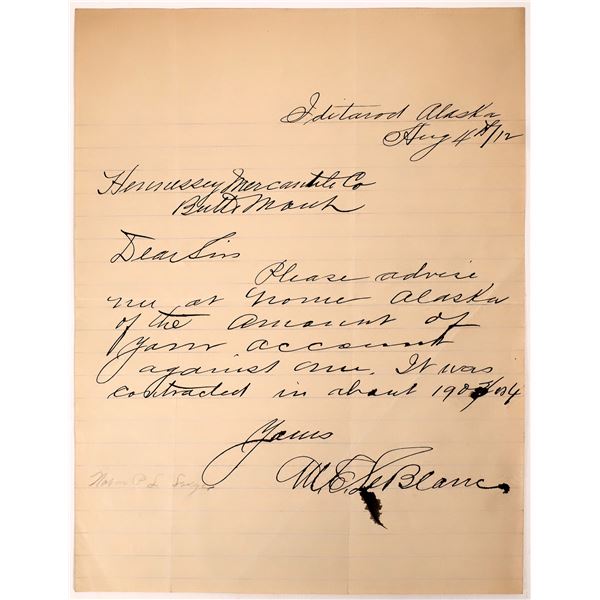 Iditarod Alaska
Aug 4th/12
Hennessey Mercantile Co
Butte Mont
Dear Sir
Please advise
me at Nome Alaska
of the amount of
your account
against me. It was
contracted in about 1903/or 4
Yours
M. E. LeBlanc